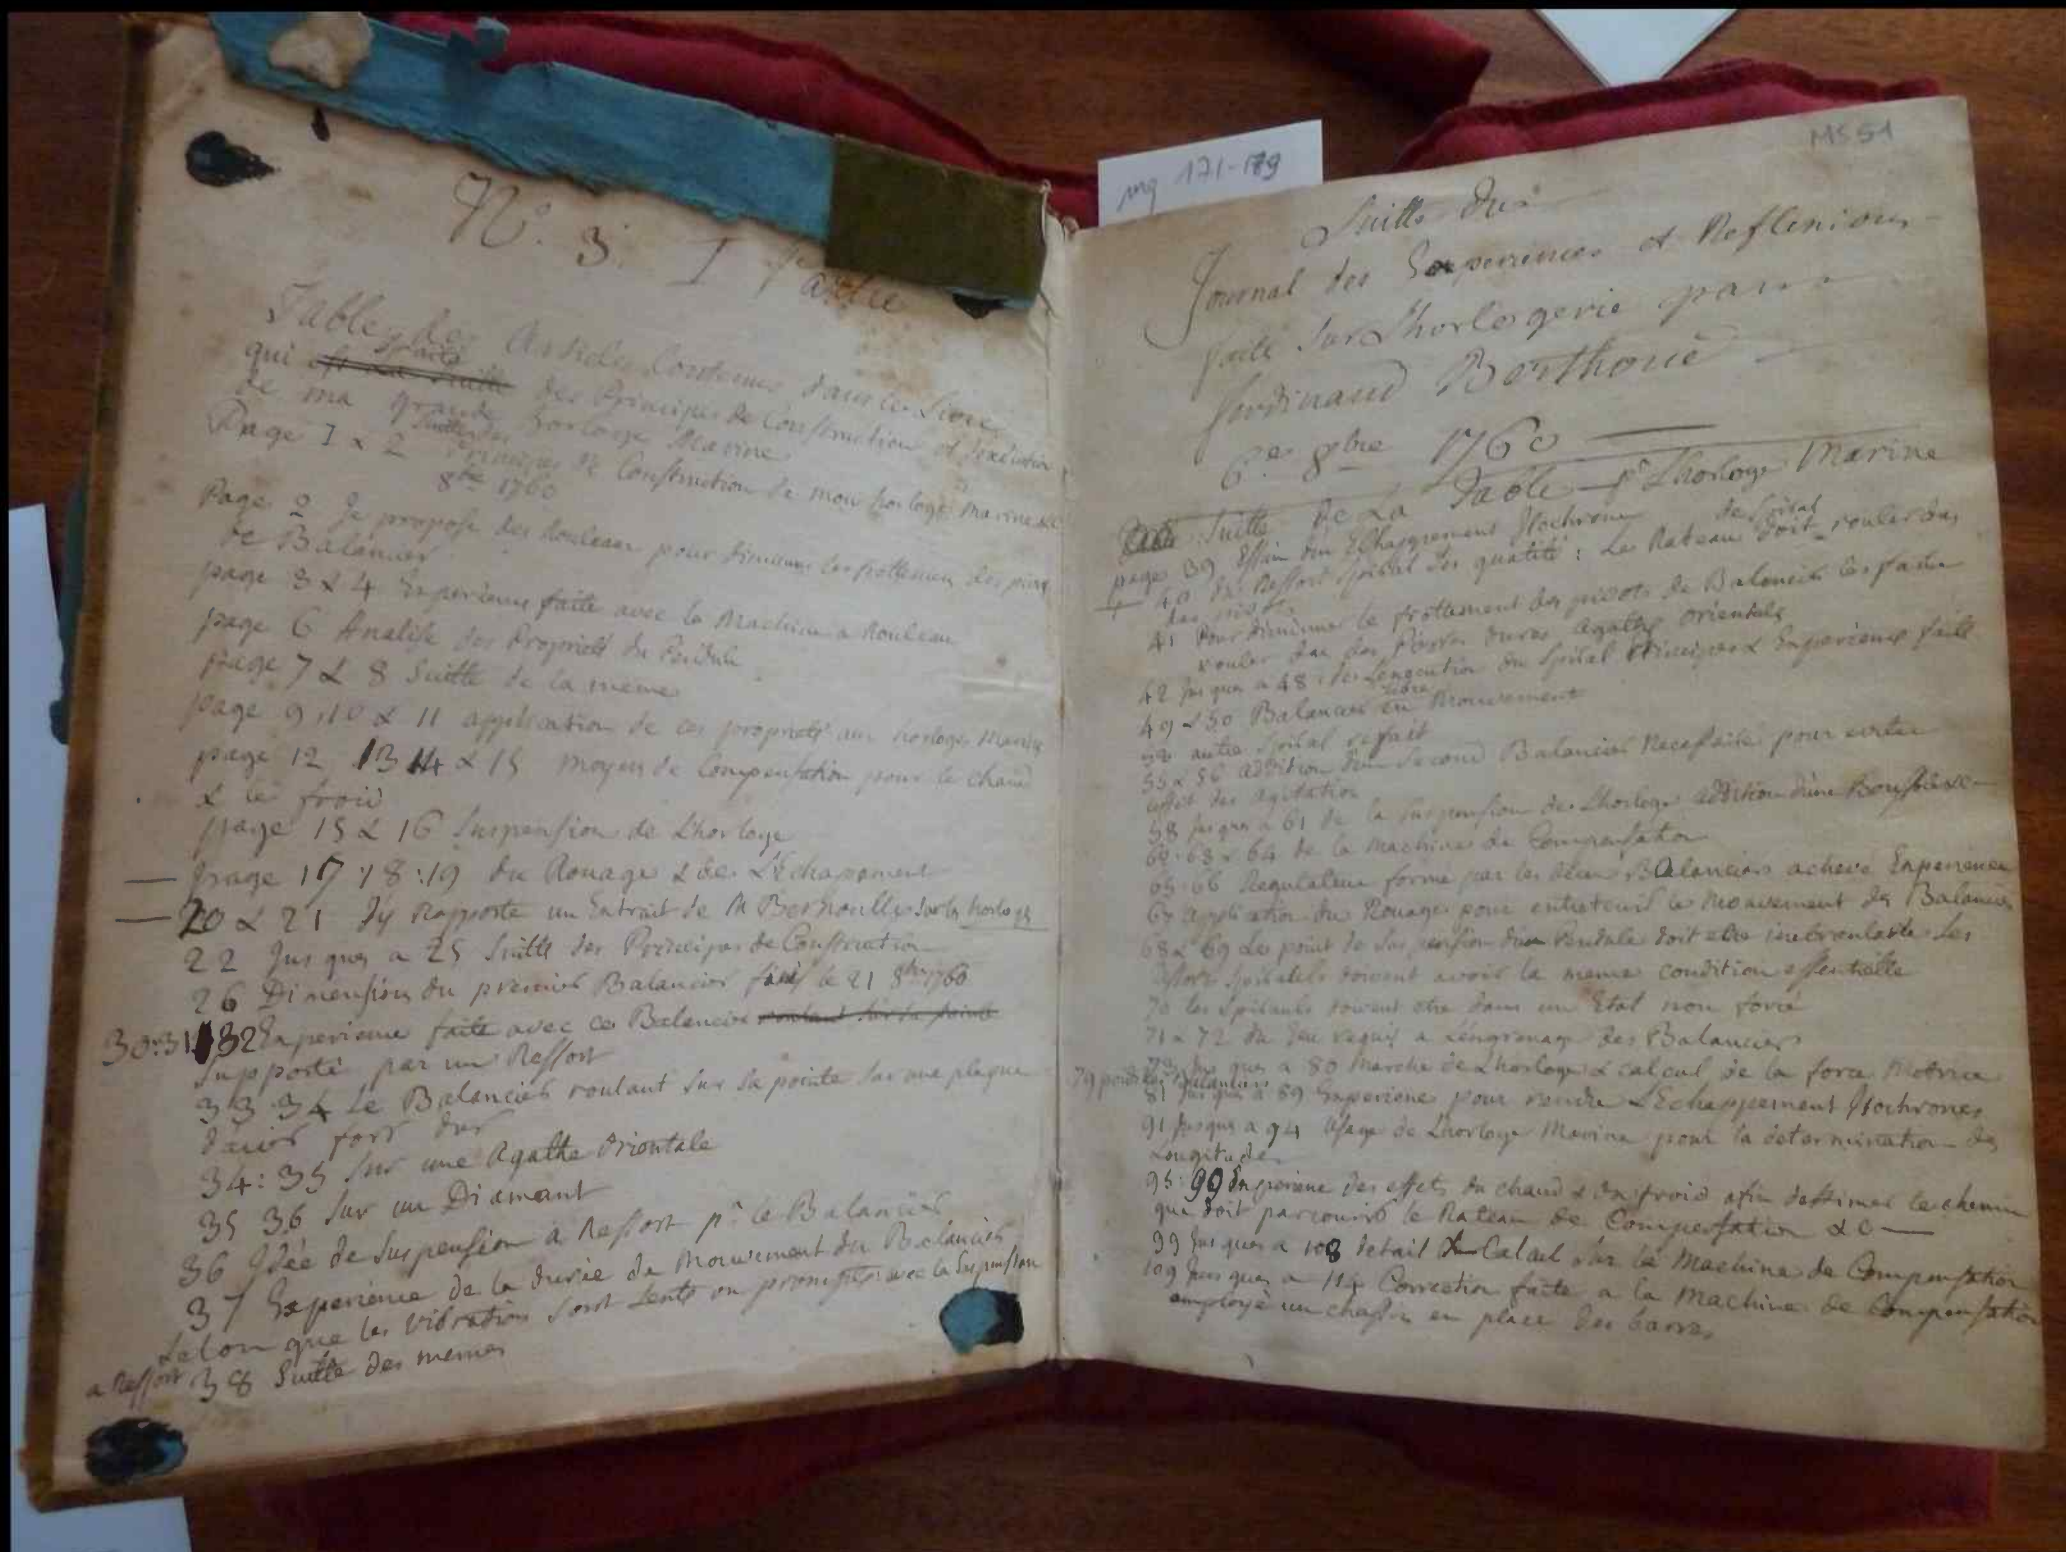 N.º 3. I Partie
Table des Articles Contenus dans ce Livre
qui traite des Principes de Construction et d'exécution
de ma grande horloge Marine
Page 1 & 2 Suitte des Principes de Construction de mon horloge Marine
8bre 1760
Page 2 Je propose des Rouleaux pour diminuer les frottemens des pivots
de Balancier
page 3 & 4 Experience faite avec la Machine a Rouleau
page 6 Analise des Propriétés du Pendule
page 7 & 8 Suitte de la meme
page 9, 10 & 11 application de ces propriétés aux horloges Marines
page 12 13 14 & 15 moyens de Compensation pour le chaud
& le froid
page 15 & 16 Suspension de L'horloge
page 17 : 18 : 19 du Rouage & de L'Echapement
20 & 21 J'y Rapporte un Extrait de M Bernoulli sur les horloges
22 Jusques a 25 Suitte des Principes de Construction
26 Dimensions du premier Balancier fait le 21 8bre 1760
30:31 32 Experience faite avec ce Balancier roulant sur sa pointe
Supporté par un Ressort
33 34 Le Balancier roulant sur sa pointe sur une plaque
d'acier fort dur
34 : 35 Sur une Agathe Orientale
35 36 Sur un Diamant
36 Idée de Suspension à Ressort pr le Balancier
37 Experience de la durée du Mouvement du Balancier
Selon que les vibrations sont lentes ou promptes avec la Suspension
a Ressort 38 Suitte des memes
mq 171-179
MS 51
Suitte du
Journal des Experiences et Reflexions
faite Sur L'horlogerie par
ferdinand Berthoud
6e 8bre 1760
Suitte de La Table pr L'horloge Marine
page 39 Essai d'un Echappement Isochrone
40 du Ressort Spiral des qualité : Le Rateau de Spiral doit rouler sur
des pivots
41 Pour diminuer le frottement des pivots de Balancier les faire
rouler sur des Pierres dures agathes orientales
42 jusques a 48 de L'execution du Spiral Principes & Experiences faite
49 & 50 Balancier Libre en Mouvement
autre Spiral refait
55 & 56 addition d'un Second Balancier Necessaire pour eviter
L'effet des agitations
58 jusques a 61 de la Suspension de L'horloge addition d'une Boussole
62 63 & 64 de la Machine de Compensation
65 : 66 Regulateur formé par les deux Balanciers achevé Experience
67 application du Rouage pour entretenir le Mouvement des Balanciers
68 & 69 Le point de Suspension d'un Pendule doit etre inebranlable Les
Ressors Spiraux doivent avoir la meme condition essentielle
70 les Spiraux doivent etre dans un Etat non forcé
71 & 72 du Jeu requis a L'engrenage des Balanciers
jusques a 80 Marche de L'horloge & Calcul de la force Motrice
79 poids des Balanciers
81 jusques a 89 Experience pour rendre L'Echappement Isochrones
91 Jusques a 94 Usage de L'horloge Marine pour la determination des
Longitudes
95 : 99 Experience des effets du chaud & du froid afin d'estimer le chemin
que doit parcourir le Rateau de Compensation &c
99 Jusques a 108 detail de Calcul sur la Machine de Compensation
109 Jusques a Correction faite a la Machine de Compensation
employé un chassis en place des barres